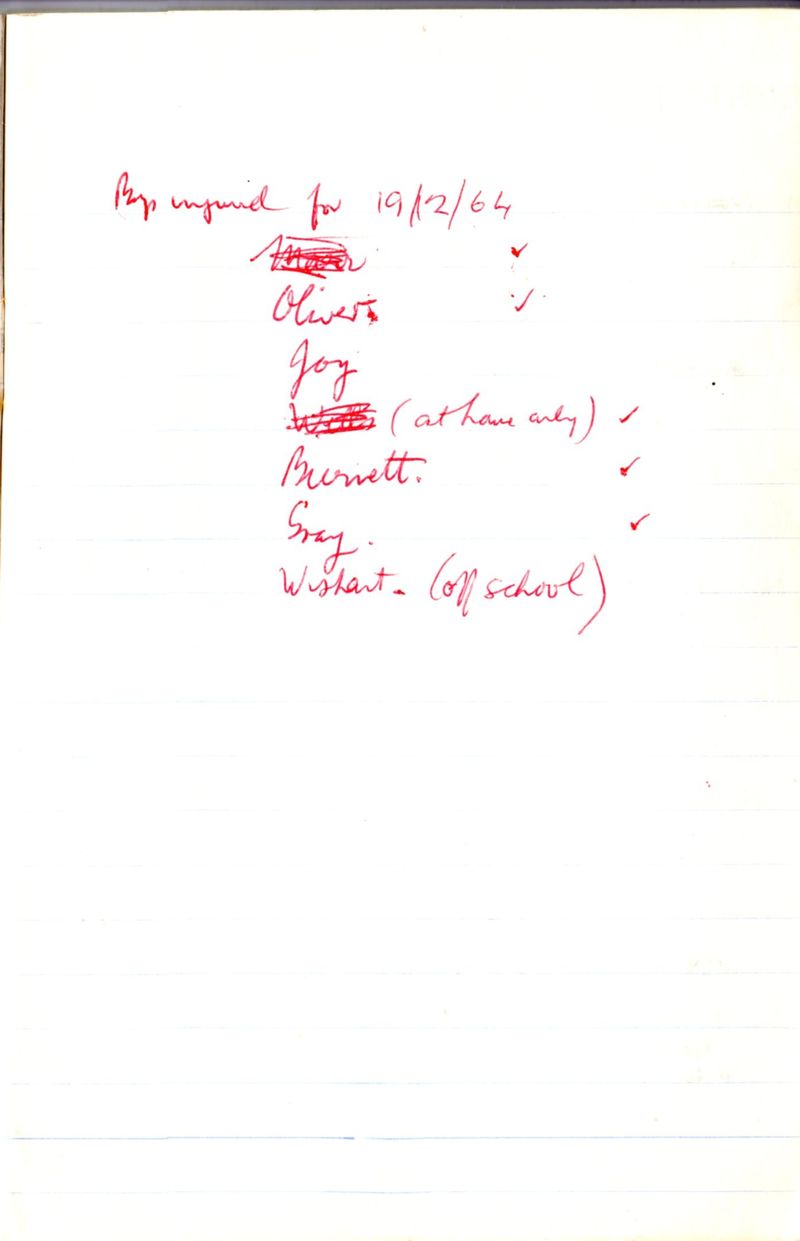 Boys injured for 19/12/64
✓
Oliver ✓
Joy
(at home only) ✓
Burnett. ✓
Gray. ✓
Wishart - (off school)